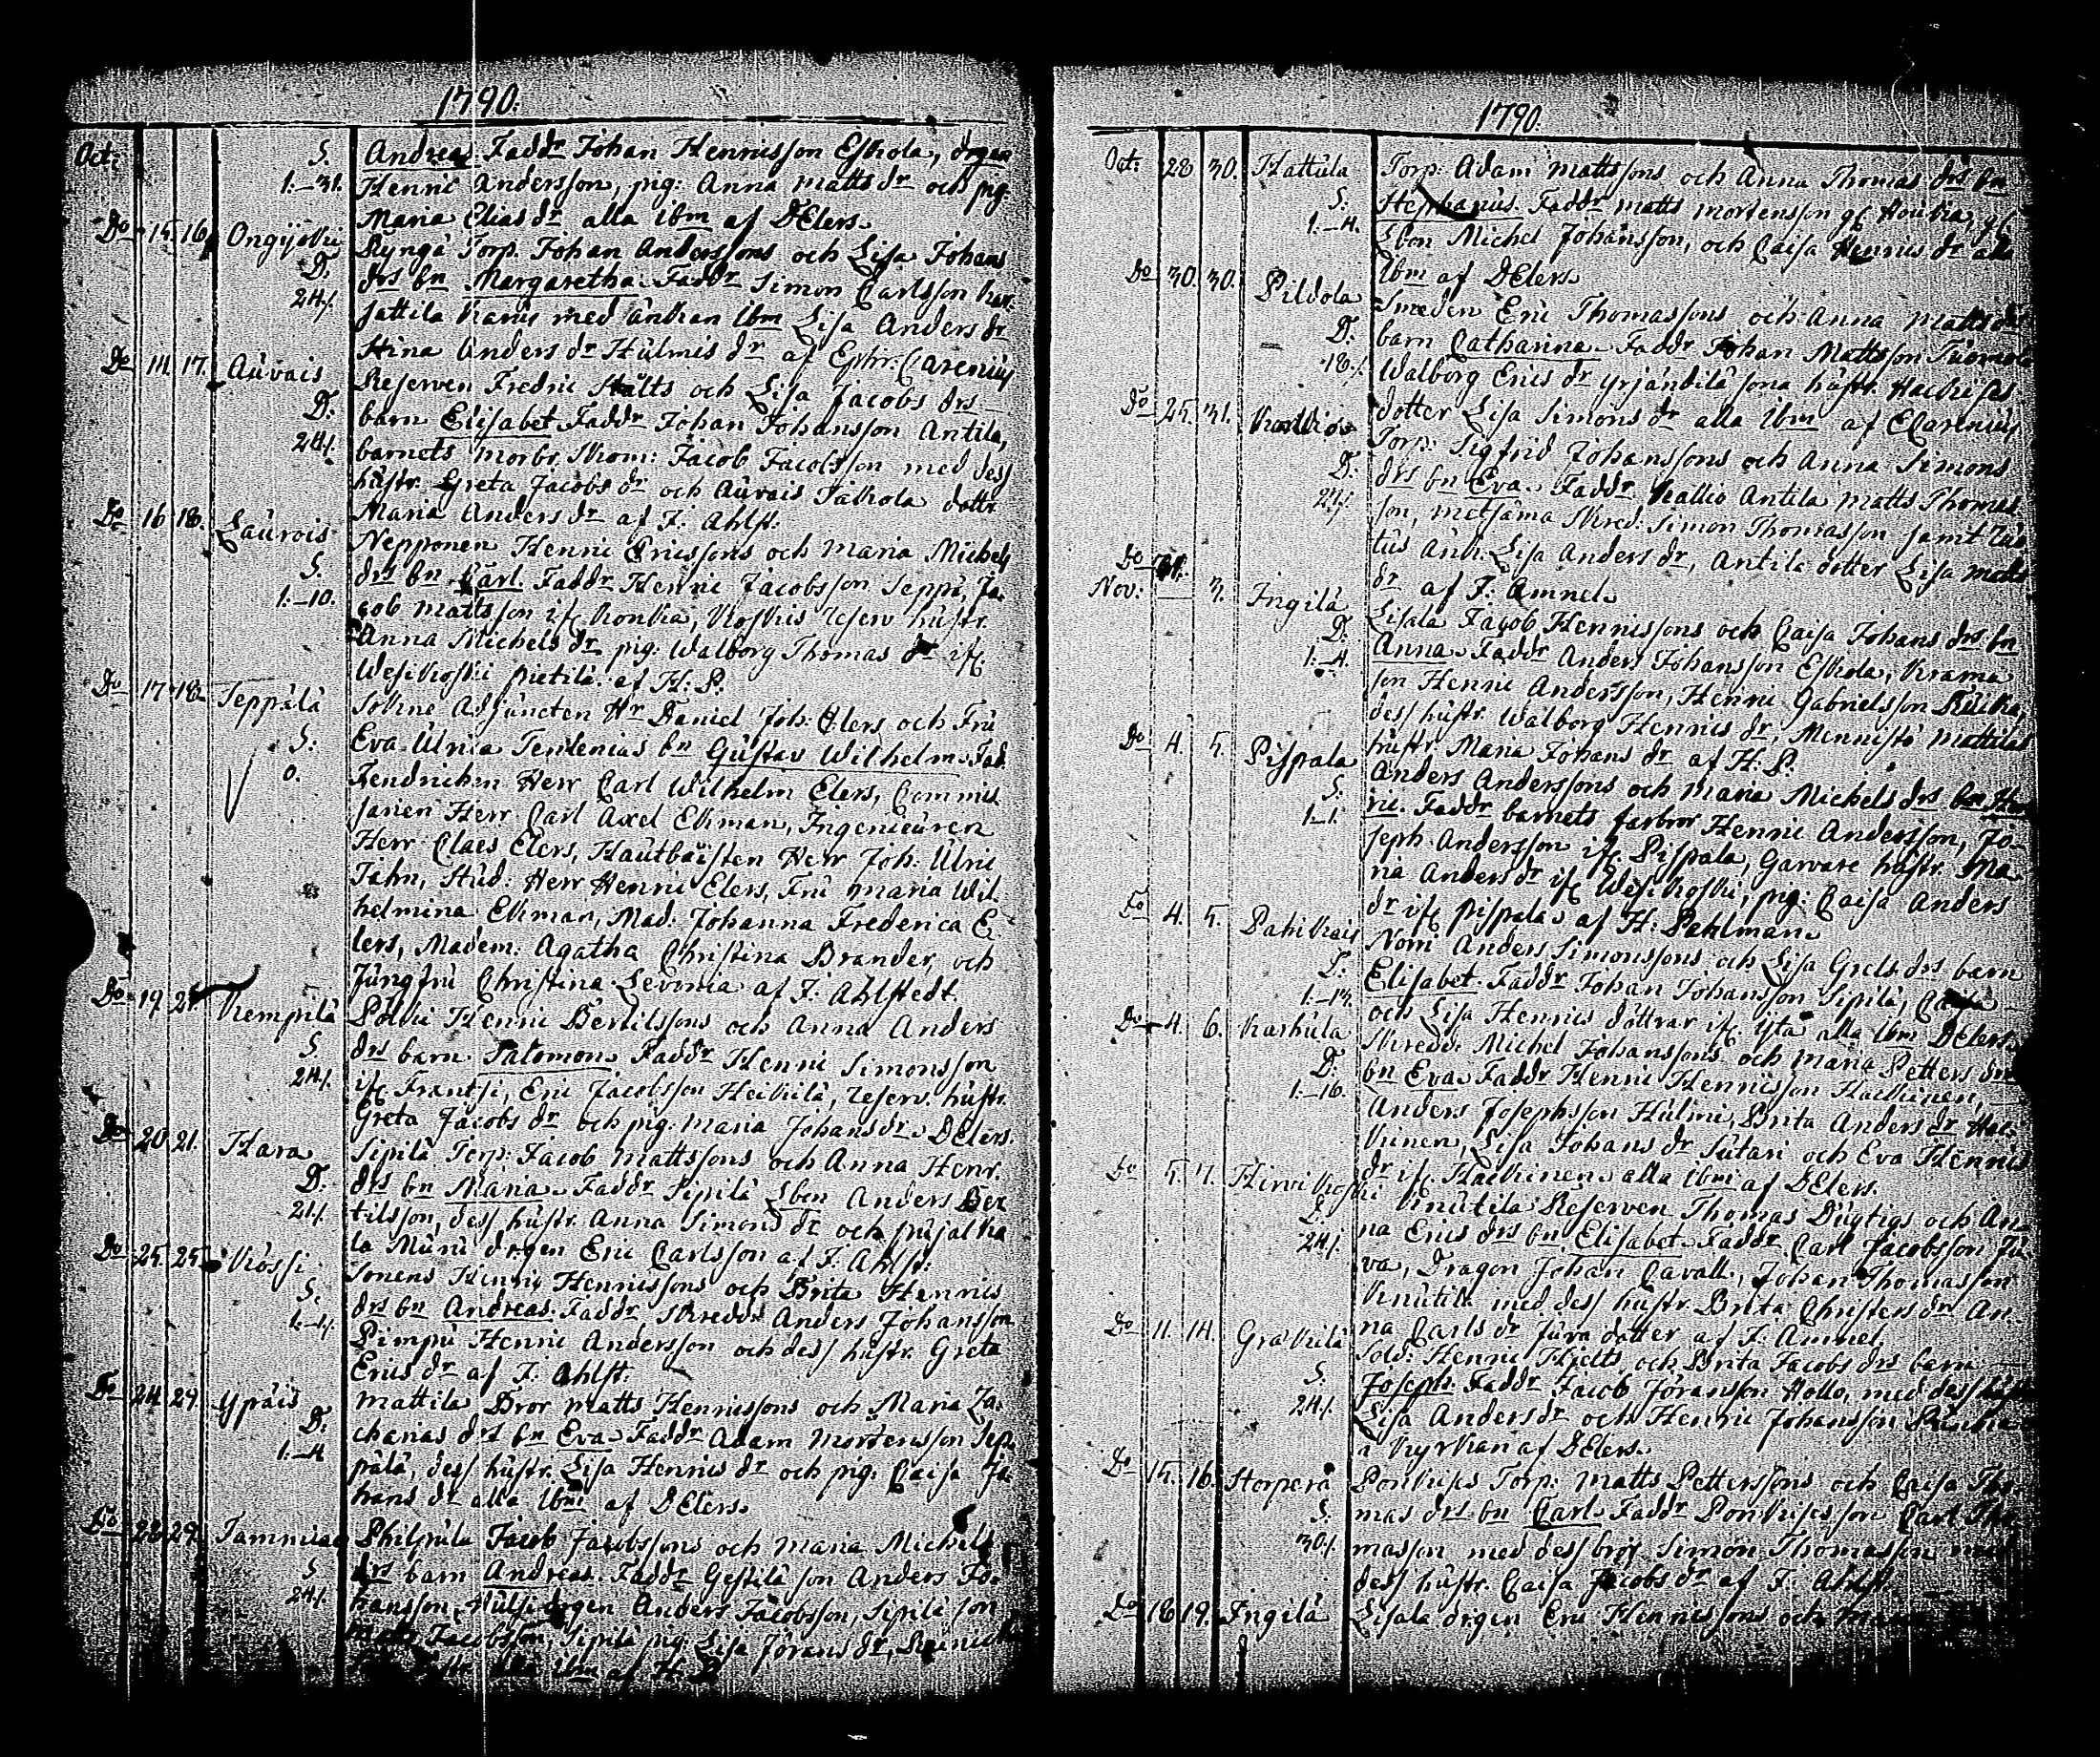 1790.
Oct: S. Andreas. Faddr Johan Henricsson Eskola, drgen
1.–31. Henric Andersson, pig: Anna Matts dr och pig:
Maria Elias dr alla ibm af DElers.
Do 15. 16. Ongijoki Ryngä Torp. Johan Anderssons och Lisa Johans
D. drs bn Margaretha. Faddr Simon Carlsson
24/. Sattila med änkan ibm Lisa Anders dr
Stina Anders dr Hulmis dr af Carenius
Do 14. 17. Auvais Reserven Fredric Stålts och Lisa Jacobs drs
D. barn Elisabet. Faddr Johan Johansson Antila,
24/. barnets morbr. Skom: Jacob Jacobsson med dess
hustr. Greta Jacobs dr och Auvais dottr
Maria Anders dr af J: Ahlst:
Do 16 18. Laurois Nepponen Henric Ericssons och Maria Michels
S. drs bn Carl. Faddr Henric Jacobsson Seppä, Ja-
1.–10. cob Mattsson if Konka, Koskis reserv hustr.
Anna Michels dr, pig: Walborg Thomas dr if
Wesikoski Pietilä. af H: P.
Do 17 18. Seppälä Adjuncten Hr Daniel Joh: Elers och Fru
S: Eva Ulrica bn Gustav Wilhelm. Fad.
0. Fendricken Herr Carl Wilhelm Elers, Commis
sarien Herr Carl Axel Ekman, Ingenieuren
Herr Claes Elers, Hautboisten Herr Joh: Ulric
Jahn, Stud: Herr Henric Elers, Fru Maria Wil-
helmina Ekman, Mad: Johanna Frederica E-
lers, Madem: Agatha Christina Brander, och
Jungfru Christina Levonia af J: Ahlstedt.
Do 19. 21. Kempilä Pölki Henric Bertilssons och Anna Anders
S. drs barn Salomon. Faddr Henric Simonsson
24/. if Frantsi, Eric Jacobsson Heikkilä, reserv. hustr.
Greta Jacobs dr och pig: Maria Johans dr. DElers.
Do 20. 21. Hara Sipilä Torp: Jacob Mattssons och Anna Henr.
D. drs bn Maria. Faddr Sipilä Ebon Anders Ber
21/. tilsson, dess hustr. Anna Simons dr och
la drgen Eric Carlsson af J: Ahlst:
Do 25. 25. Kössi Sonens Henric Henricssons och Brita Henrics
S. drs bn Andreas. Faddr Skredd: Anders Johansson
Pimpu Henric Andersson och dess hustr. Greta
Erics dr af J: Ahlst:
Do 24. 29. Ypäis Mattila Bror Matts Henricssons och Maria Za-
D. charias drs bn Eva. Faddr Adam Mortensson Sep-
1.–4 pälä, dess hustr. Lisa Henrics dr och pig: Caisa Jo-
hans dr alla ibm af DElers.
Do 28. 29. Tammiais Jacob Jacobssons och Maria Michels
S drs barn Andreas. Faddr son Anders Jo-
24/. hansson, drgen Anders Jacobsson, Sipilä son
Matts Jacobsson, Sipilä pig: Lisa Jörans dr,
alla ibm af H: P
1790.
Oct: 28 30. Hattula Torp: Adam Mattssons och Anna Thomas drs bn
S: Stephanus. Faddr Matts Mortensson
1.–4. Ebon Michel Johansson, och Caisa Henrics dr alla
ibm af DElers.
Do 30. 30. Pildola Smeden Eric Thomassons och Anna Matts dr
D. barn Catharina. Faddr Johan Mattsson
18./. Walborg Erics dr sona hustr.
Do 25. 31. dotter Lisa Simons dr alla ibm af ECarenius
Torp: Sigfrid Johanssons och Anna Simons
D. drs bn Eva. Faddr Kallio Antila Matts Thomas
24/. son, Metsäma Skred: Simon Thomasson samt
Lisa Anders dr, Antila dotter Lisa Matts
Do 31. dr af J: Amnel.
Nov: 3. Ingilä Lisala Jacob Henricssons och Caisa Johans drs bn
D. Anna. Faddr Anders Johansson Eskola, Krama
1.–4. son Henric Andersson, Henric Gabrielsson
dess hustr. Walborg Henrics dr, Mennistö Mattilas
hustr. Maria Johans dr af H: P.
Do 4. 5. Pispala Anders Anderssons och Maria Michels drs bn Hen-
S. ric. Faddr barnets farbror Henric Andersson, Jo-
1.–1. seph Andersson if Pispala, Garvare hustr. Ma-
ria Anders dr if Wesikoski, pig: Caisa Anders
dr if Pispala. af H: Pahlman.
Do 4. 5. Pahikais Nom Anders Simonssons och Lisa Grels drs barn
D. Elisabet. Faddr Johan Johansson Sipilä, Caisa
1.–14. och Lisa Henrics döttrar if alla ibm DElers.
Do 4. 6. Karhula Skredd: Michel Johanssons och Maria Petters drs
D. bn Eva. Faddr Henric Henricsson Haikinen,
1.–16. Anders Josephsson Hulmi, Brita Anders dr Hai-
kinen, Lisa Johans dr Sutari och Eva Henrics
dr if Haikinen. alla ibm af DElers.
Do 5. 7. Hirvikoski Knutila Reserven Thomas Dugtigs och An-
D. na Erics drs bn Elisabet. Faddr Carl Jacobsson Ju-
24/. va, Dragon Johan Cavall, Johan Thomasson
Knutila med dess hustr. Brita Christers dr An-
na Carls dr Juva dotter af J: Amnel.
Do 11. 14. Gräkilä Sold: Henric Hjelts och Brita Jacobs drs barn
S. Joseph. Faddr Jacob Jöransson Hollo, med dess hust
24/. Lisa Anders dr och Henric Johansson
i Kyrkan af DElers.
Do 15. 16. Horperä Ponkises Torp: Matts Petterssons och Caisa Tho-
S. mas drs bn Carl. Faddr Ponkises son Carl Tho-
30/. masson med dess bror Simon Thomasson med
dess hustr. Caisa Jacobs dr af J: Ahlst.
Do 18. 19. Ingilä Lisala drgen Eric Henricssons och Maria